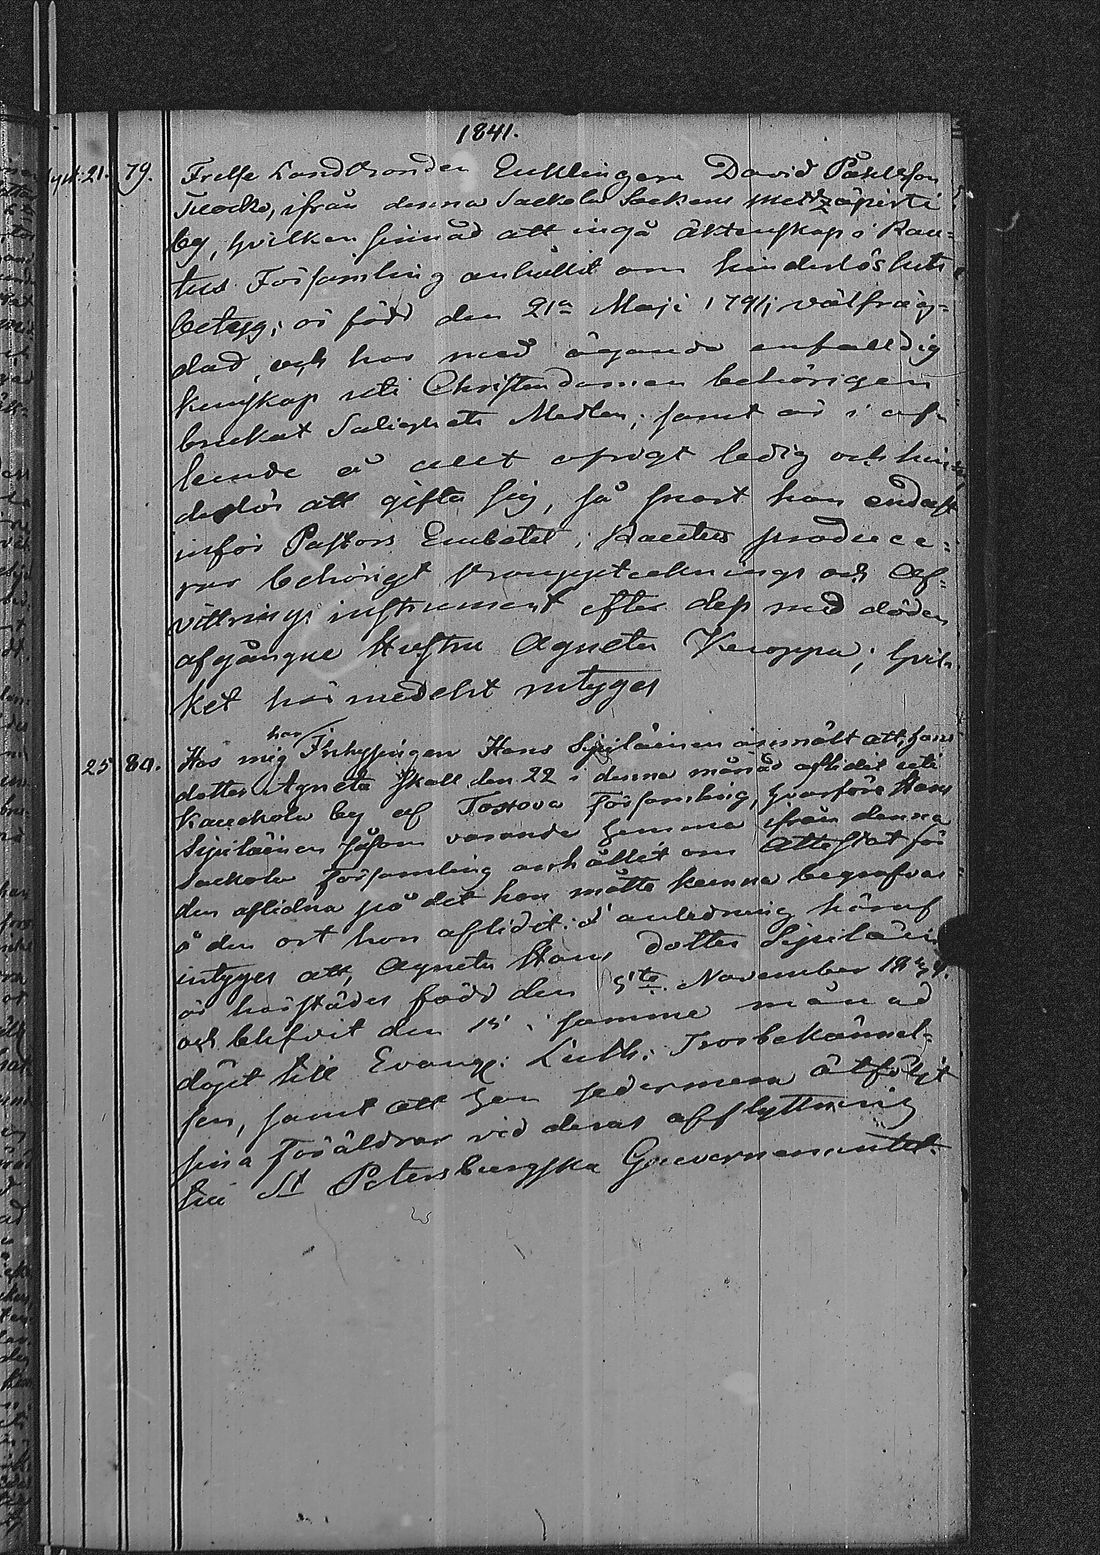 1841.
Sept. 21. 79. Frelse Landtbonden Enklingen David Påhlsson
Tuocko, ifrån denna Sackola Sockens Metzäpirti
by, hvilken sinnad att ingå äktenskap i Rau-
tus Församling anhållit om hinderslöshets
betyg; är född den 21a Maji 1791; välfräg-
dad, och har med ägande enfaldig
kunskap uti Christendomen behörigen
brukat Salighets Medlen; samt är i af-
seende å allt öfrigt ledig och hin-
derslös att gifta sig, så snart han endast
inför Pastors Embetet i Rautus produce-
rar behörigt Arfs och Af-
vittrings instrument efter dess med döden
afgångne Hustru Agneta Kiroppa; hvil-
ket härmedelst intygas
25 80. Hos mig har Inhysingen Hans Sipiläinen anmält att, hans
dotter Agneta skall den 22 i denna månad aflidit uti
Kauckola by af Toxova Församling, hvarföre Hans
Sipiläinen såsom varande hemma ifrån denna
Sackola Församling anhållit om Attestat för
den aflidna på det hon måtte kunna begrafvas
å den ort hon aflidit. I anledning häraf
intygas att, Agneta Hans dotter Sipiläin
är härstädes född den 5te November
och blifvit den 15 i samme månad
döpt till Evang: Luth: Trosbekännel-
sen, samt att hon sedermera åtföljt
sina Föräldrar vid deras afflyttning
till St Petersburgska Gouvernementet.